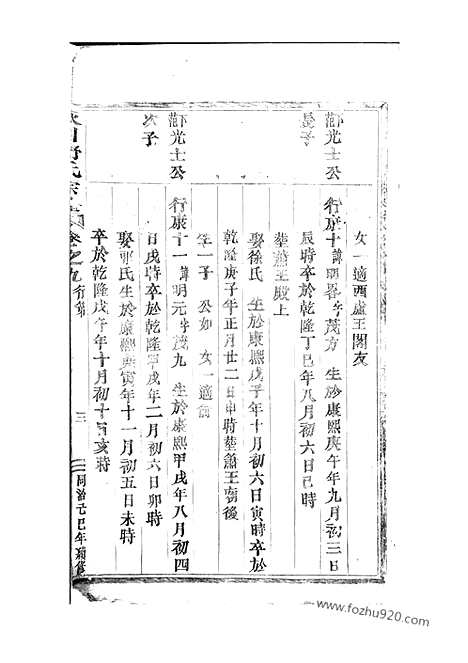 女一適西盧王閣友
邵光士公長子
行康十諱明畧字茂方 生於康熙庚午年九月初三日
辰時卒於乾隆丁巳年八月初六日巳時
塟蕭王殿上
娶徐氏 生於康熙戊子年十月初六日寅時卒於
乾隆庚子年正月廿二日申時塟蕭王廟後
生一子 公如 女一適俞
邵光士公次子
行康十一諱明元字茂九 生於康熙甲戌年八月初四
日戌時卒於乾隆甲戌年二月初六日卯時
娶郭氏生於康熙庚寅年十一月初五日未時
卒於乾隆戊午年十月初十日亥時
川舒氏宗 卷之九行第 三 同治己巳年續修
www.fozhu920.com